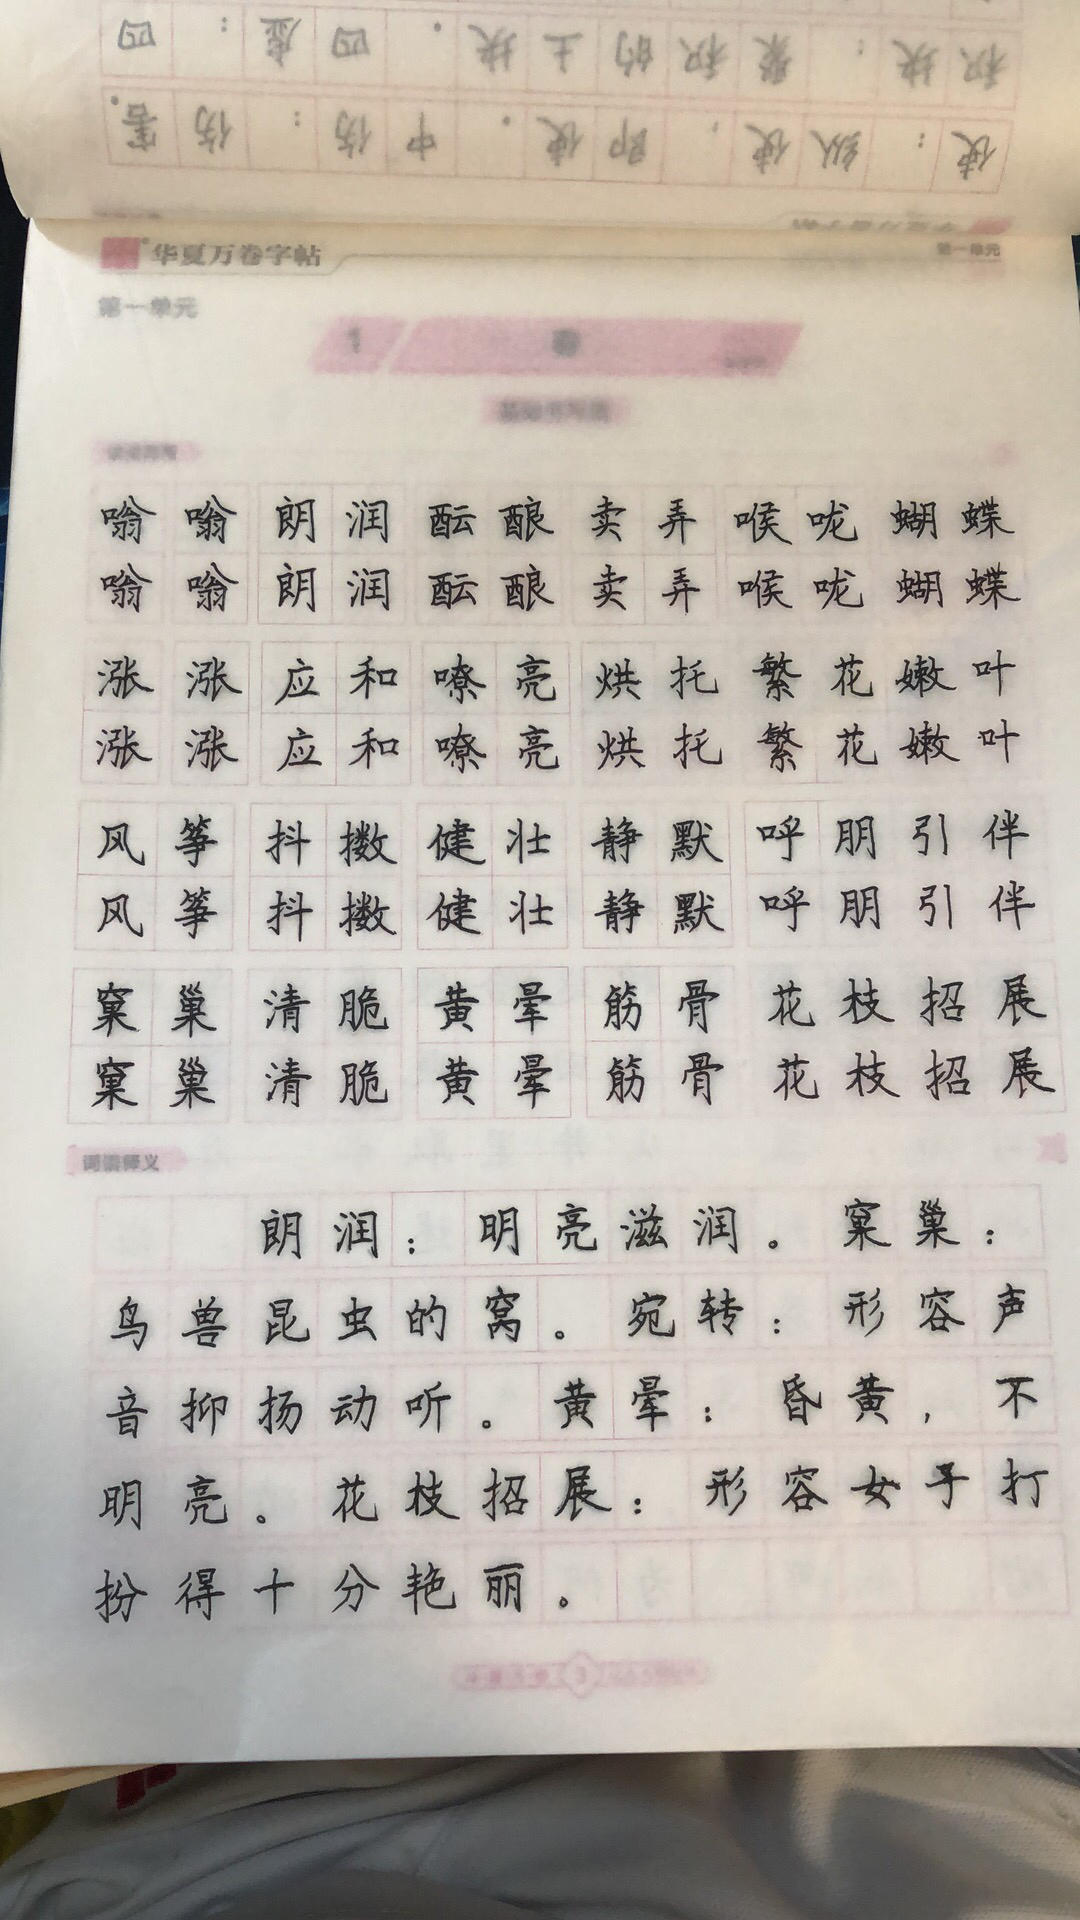 华夏万卷字帖
第一单元
第一单元
1 春
嗡嗡 朗润 酝酿 卖弄 喉咙 蝴蝶
嗡嗡 朗润 酝酿 卖弄 喉咙 蝴蝶
涨涨 应和 嘹亮 烘托 繁花嫩叶
涨涨 应和 嘹亮 烘托 繁花嫩叶
风筝 抖擞 健壮 静默 呼朋引伴
风筝 抖擞 健壮 静默 呼朋引伴
窠巢 清脆 黄晕 筋骨 花枝招展
窠巢 清脆 黄晕 筋骨 花枝招展
词语释义
朗润：明亮滋润。窠巢：
鸟兽昆虫的窝。宛转：形容声
音抑扬动听。黄晕：昏黄，不
明亮。花枝招展：形容女子打
扮得十分艳丽。